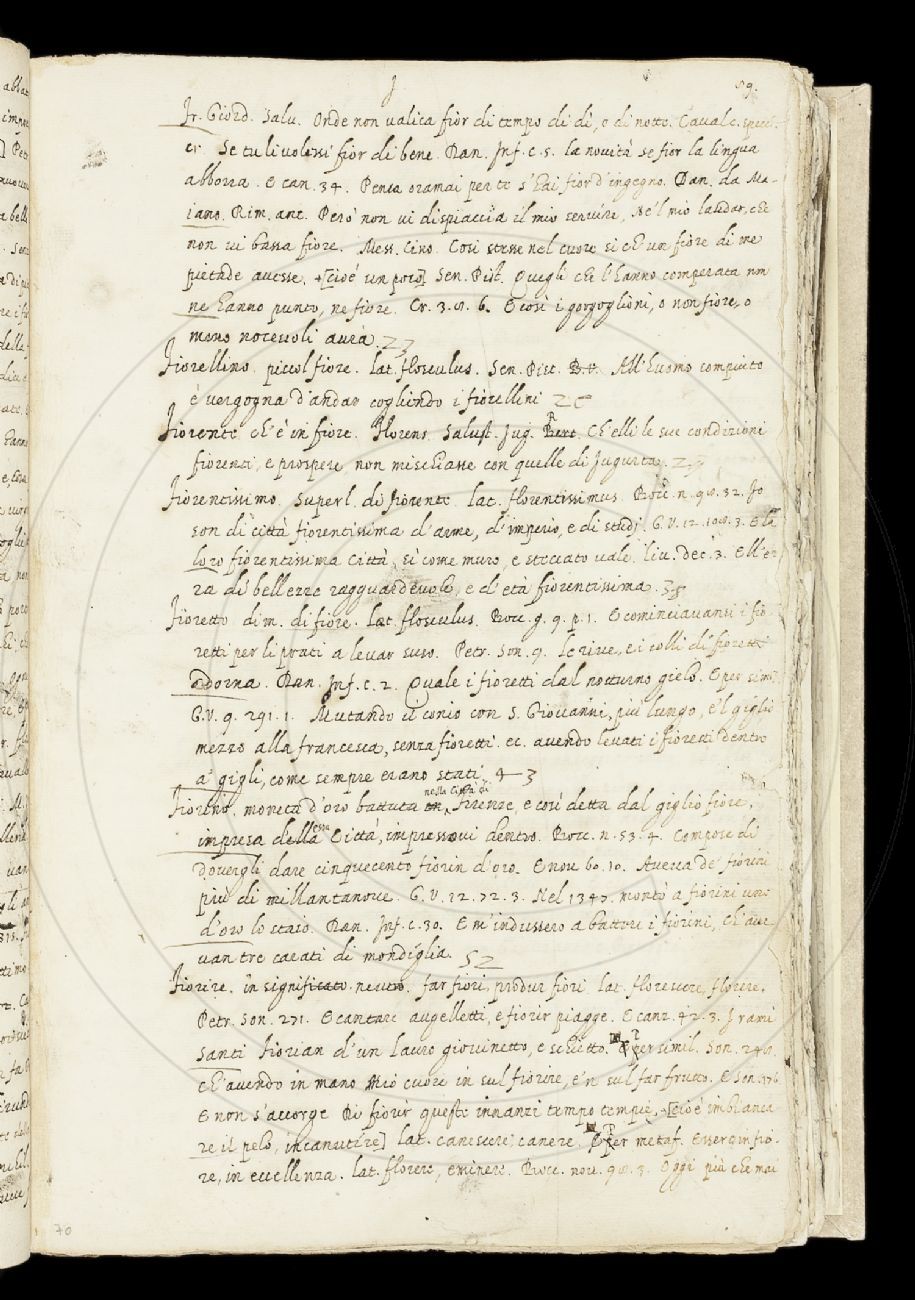 f 89.
Fr. Giord. Salu. Onde non ualica fior di tempo di dì, o di notte. Caualc. specc.
cr. Se tu li uolessi fior di bene. Dan. Inf. c. 5. la nouità se fior la lingua
abborra. E can. 34. Pensa oramai per te s'hai fior d'ingegno. Dan. da Ma-
iano. Rim. ant. Però non ui dispiaccia il mio seruire, Ne'l mio laudar, che
non ui bassa fiore. Mess. Cino. Così stesse nel cuore si ch'un fiore di me
pietade auesse. +[cioè un poco] Sen. Pist. Quegli che l'hanno comperata non
ne hanno punto, ne fiore. Cr. 3. 8. 6. E così i gorgoglioni, o non fiore, o
meno nocevoli aurà 27
Fiorellino. piccol fiore. lat. flosculus. Sen. Pist. B.V. All'huomo compiuto
è uergogna d'andar cogliendo i fiorellini 28
Fiorente ch'è in fiore. Florens. Salust. Jug. R. Ch'elli le sue condizioni
fiorenti, e prospere non mischiasse con quelle di Jugurta. 29
Fiorentissimo. Superl. di fiorente lat. florentissimus. Bocc. n. 98. 32. Io
son di città fiorentissima d'arme, d'imperio, e di studj. G. V. 12. 108. 3. E la
loro fiorentissima Città, sì come muro, e steccato uale. liu. dec. 3. Ell'e-
ra di bellezze ragguardeuole, e d'età fiorentissima. 38
Fioretto dim. di fiore. lat. flosculus. Bocc. g. 9. p. 1. E cominciauansi i fio-
retti per li prati a leuar suso. Petr. Son. 9. le riue, e i colli di fioretti
adorna. Dan. Inf. c. 2. Quale i fioretti dal notturno gielo. E per simi.
G. V. 9. 291. 1. Mutando il conio con S. Giouanni, più lungo, e'l giglio
mezzo alla francesca, senza fioretti. ec. auendo leuati i fioretti dentro
a' gigli, come sempre erano stati. 43
nella Città di
Fiorino. moneta d'oro battuta in Firenze, e così detta dal giglio fiore,
impresa della essa Città, impressoui dentro. Bocc. n. 53. 4. Compose di
douergli dare cinquecento fiorin d'oro. E nou. 60. 10. Aueua de' fiorini
più di millantanoue. G. V. 12. 72. 3. Nel 1347. montò a fiorini uno
d'oro lo staio. Dan. Inf. c. 30. E m'indussero a battere i fiorini, Ch'aue-
uan tre carati di mondiglia. 52
Fiorire. in significato neutro. far fiori, produr fiori lat. florescere, florere.
Petr. Son. 271. E cantare augelletti, e fiorir piagge. E canz. 42. 3. I rami
santi Fiorian d'un lauro giouinetto, e schietto. Per simil. Son. 248.
ch'auendo in mano Mio cuore in sul fiorire, e'n sul far frutto. E Son. 176.
E non s'accorge Di fiorir queste innanzi tempo tempie, +[cioè imbianca
re il pelo, incanutire] lat. canescere canere. Per metaf. Esser in fio-
re, in eccellenza. lat. florere, eminere. Bocc. nou. 98. 3. Oggi più che mai
70